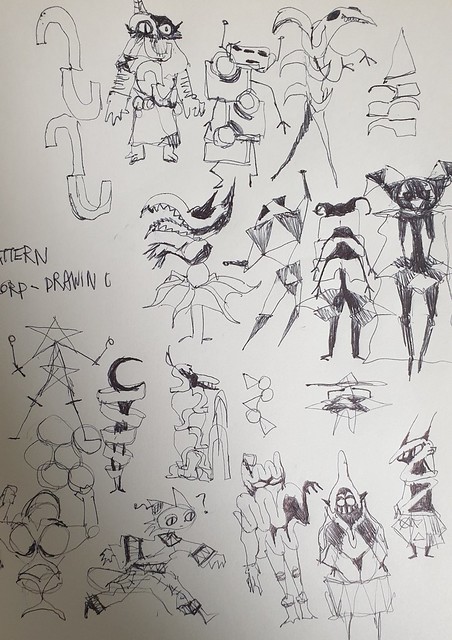 ATTERN
ORP-DRAWING
?